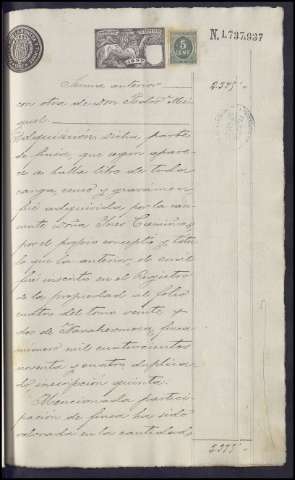 N. 1.737.937
5
CENT.
Suma anterior 2.375'-
con otra de Don Pedro Mi-
guel.
Adquisición. Dicha parte
de finca, que según apare-
ce se halla libre de toda
carga, censo y gravamen
fué adquirida por la cau-
sante Doña Ines
por el propio concepto y titu-
lo que la anterior, el cual
fué inscrito en el Registro
de la propiedad al folio
del tomo veinte y
dos de finca
número mil cuatrocientos
noventa y cuatro duplica-
do inscripción quinta.
Mencionada partici-
pación de finca ha sido
valorada en la cantidad
2.375'-